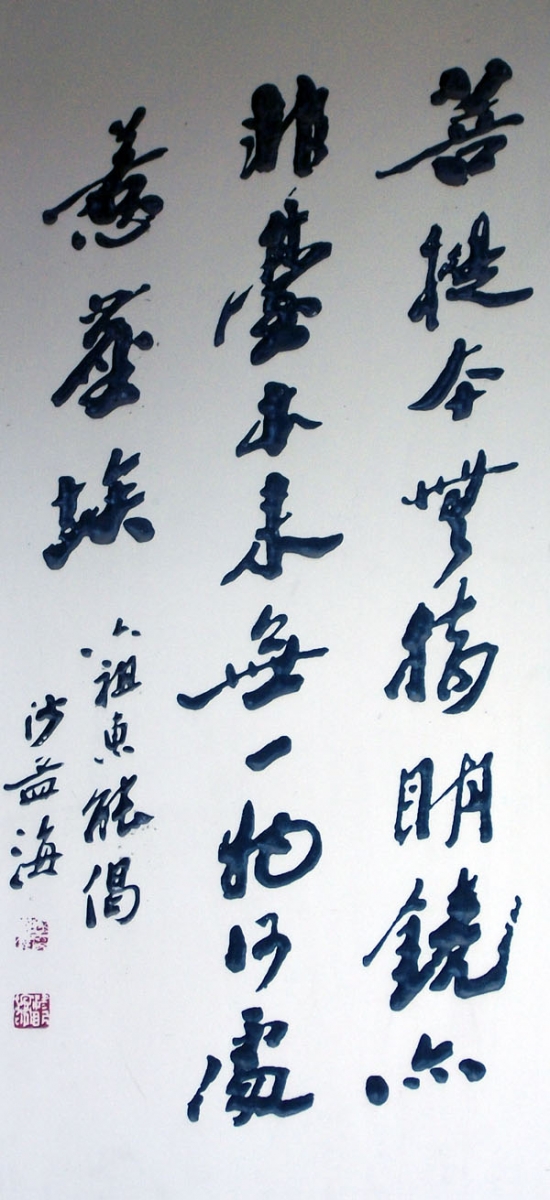 菩提本無樹明鏡亦
非臺本來無一物何處
惹塵埃
六祖惠能偈
沙孟海